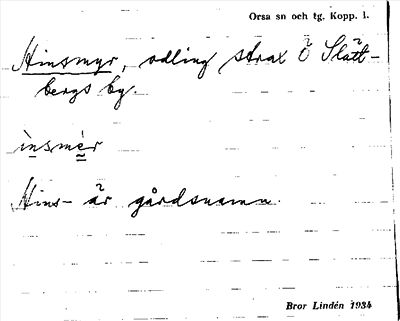 Orsa sn och tg, Kopp. l.
Hinsmyr, odling strax Ö Slätt-
bergs by.
ìnsmèr
Hins- är gårdsnamn.
Bror Lindén 1934